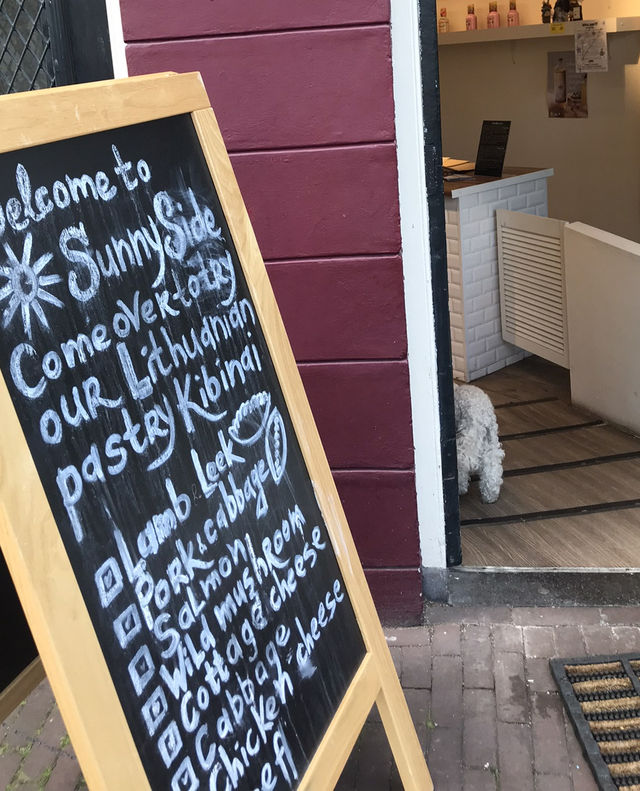 Welcome to
SunnySide
Come over to try
our Lithuanian
pastry Kibinai
Lamb Leek
Pork & cabbage
Salmon
Wild mushroom
Cottage cheese
Cabbage
Chicken cheese